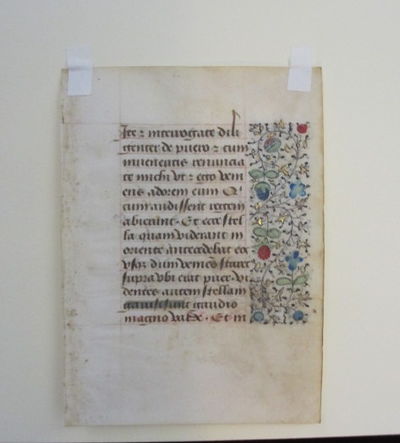 Ite & interrogate dili
genter de puero & cum
inueneritis renuncia
te michi vt & ego ven
ens adorem eum Q'
cum audissent regem
abierunt. Et ecce stel
la quam viderant in
oriente antecedebat eos
vsq dum veniens staret
supra vbi erat puer Vi
dentes autem stellam
gauisi sunt gaudio
magno valde. Et in